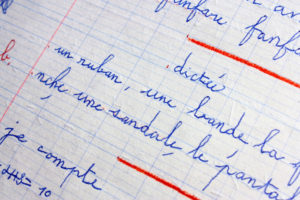 fanfare fanfa
dictée
b. un ruban, une bande la
une sandale, le panta
je compte
= 10